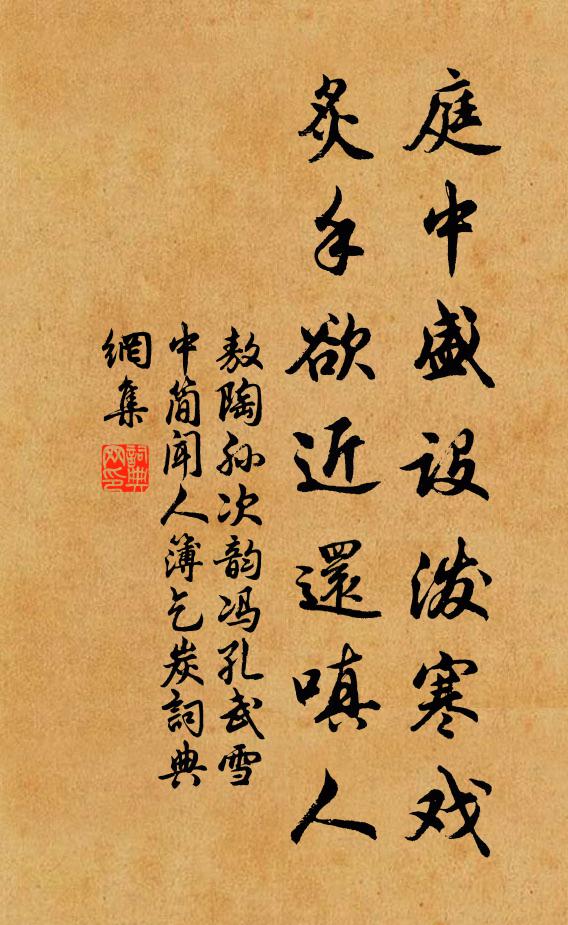 庭中盛设泼寒戏
炙手欲近還嗔人
敖陶孙次韵冯孔武雪
中简闻人簿乞炭詞典
網集
詞典
网印